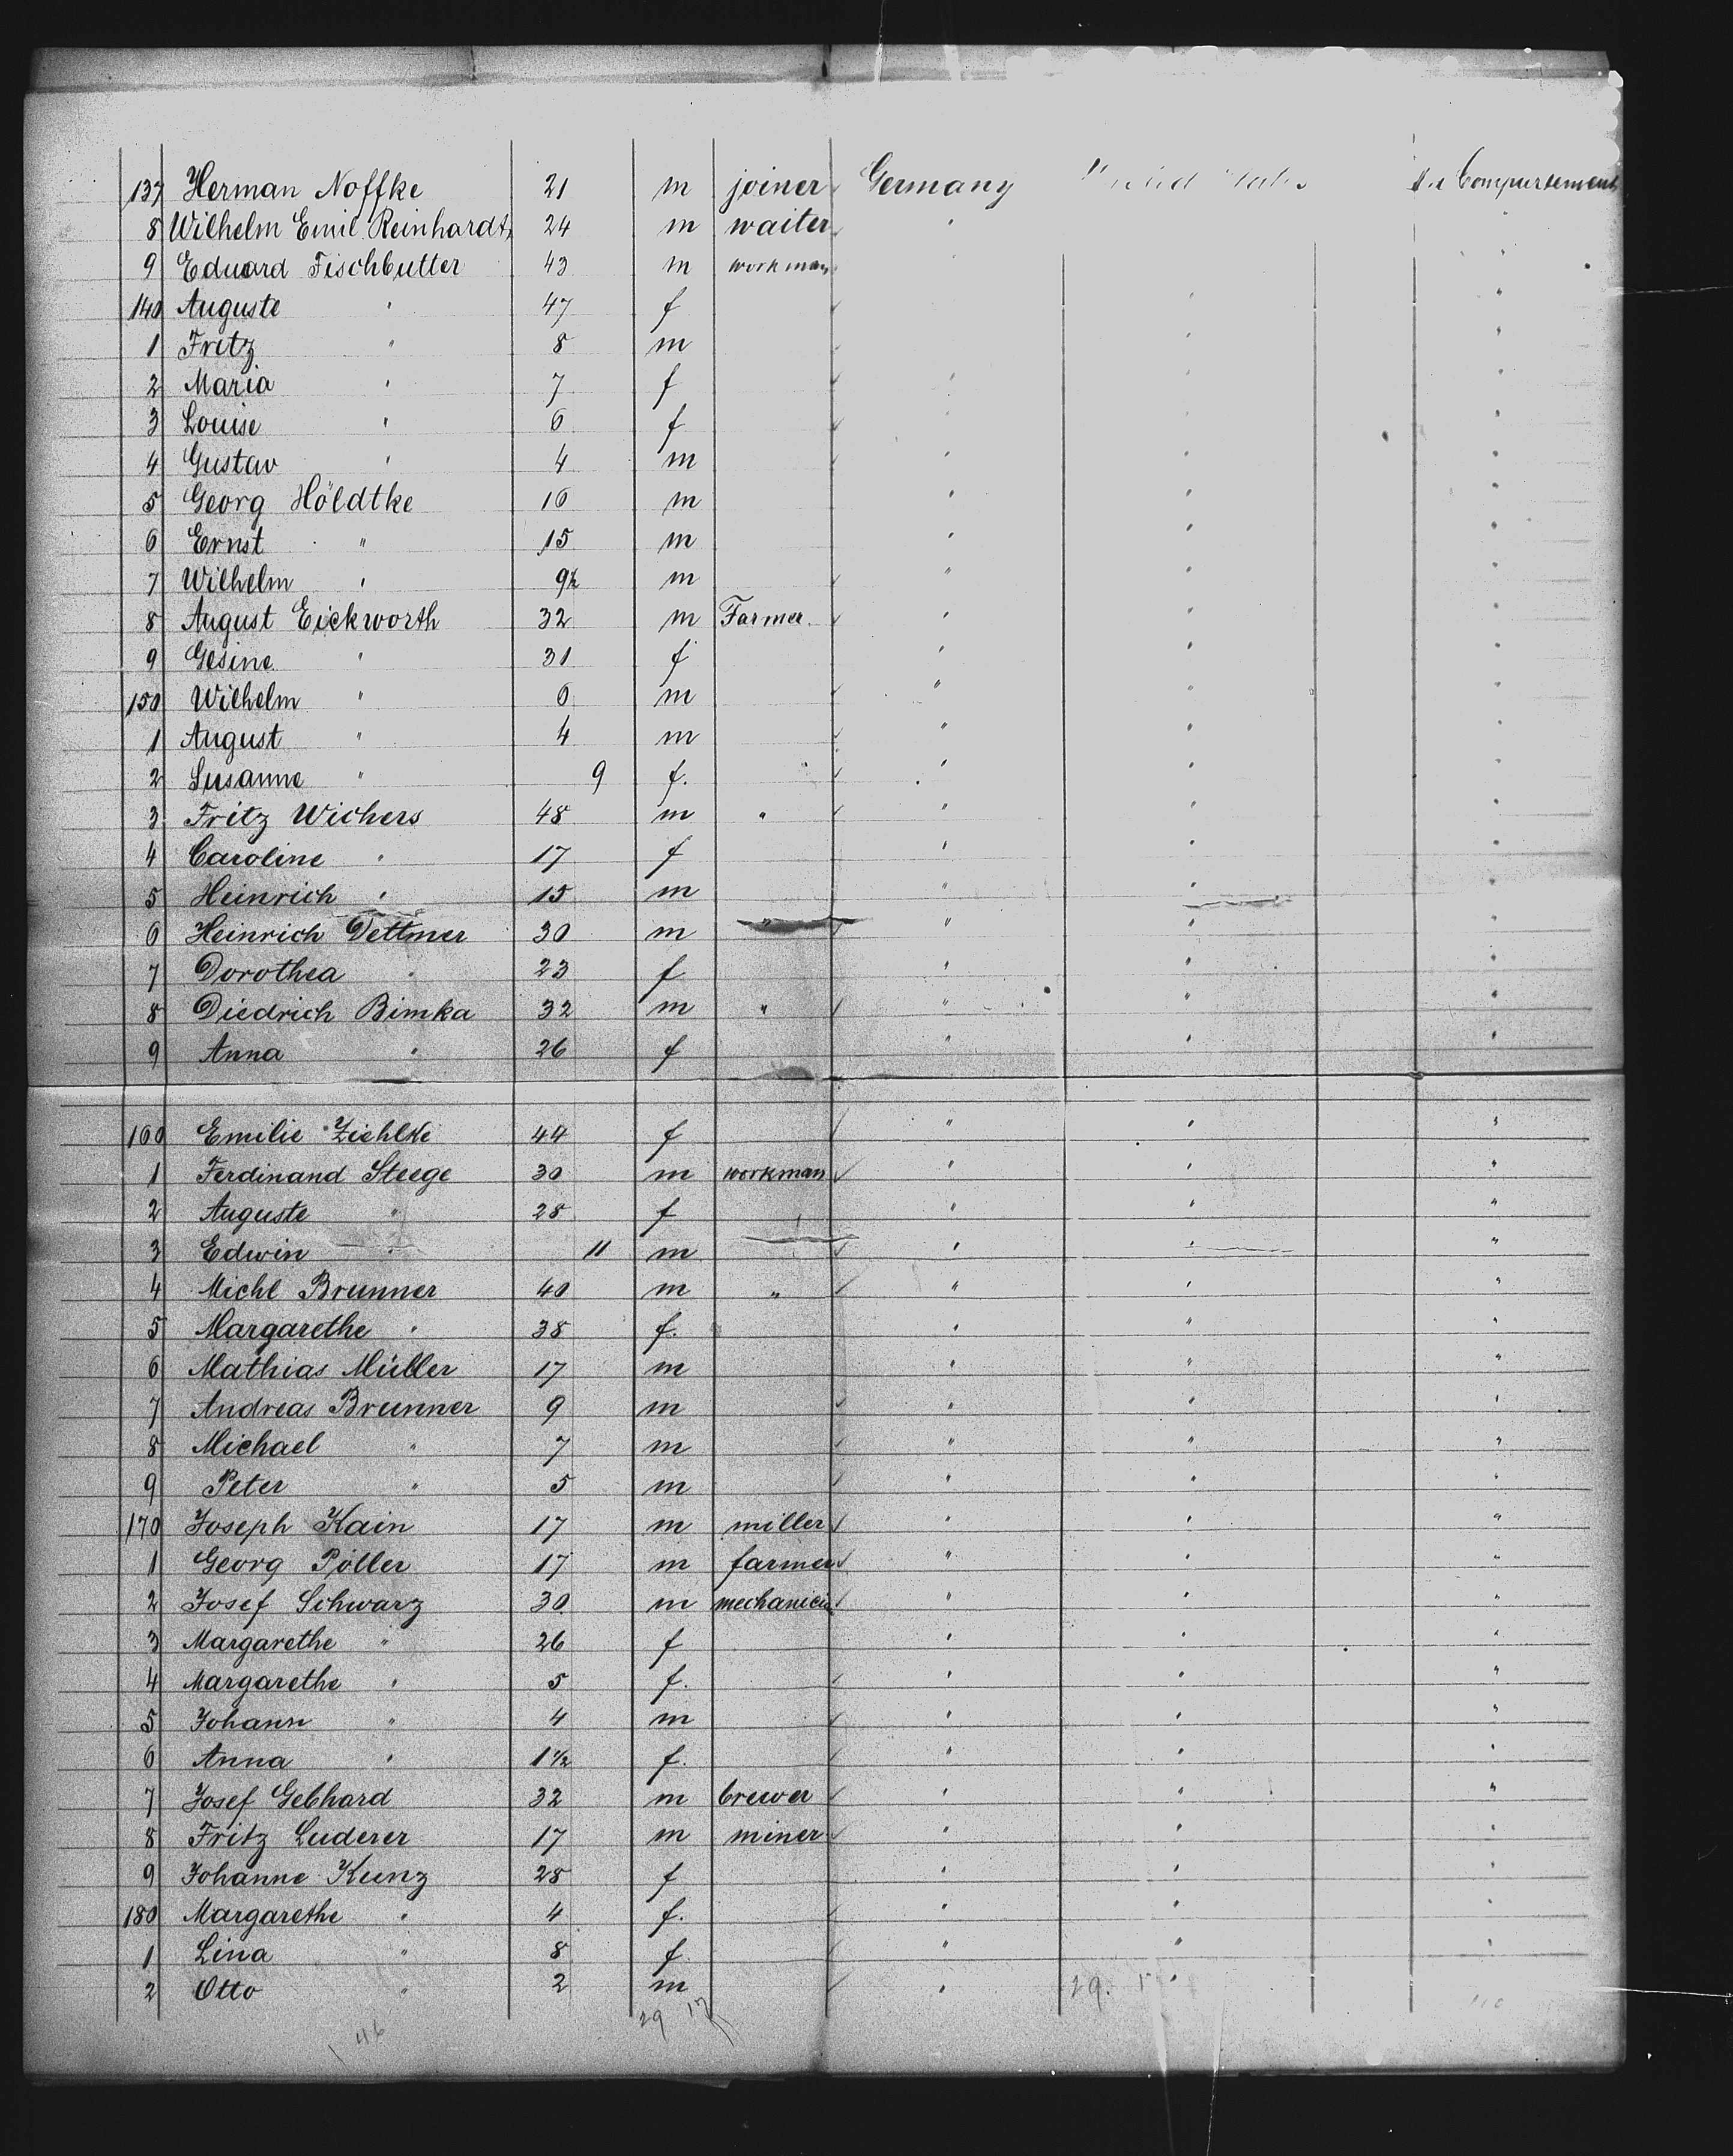 137 Herman Noffke 21 m joiner Germany
8 Wilhelm Emil Reinhardt 24 m waiter
9 Eduard Fischbutter 43 m workman
140 Auguste " 47 f
1 Fritz " 8 m
2 Maria " 7 f " " "
3 Louise " 6 f " " "
4 Gustav " 4 m " " "
5 Georg Höldtke 16 m " " "
6 Ernst " 15 m " " "
7 Wilhelm " 9½ m " " "
8 August Eickworth 32 m Farmer " " "
9 Gesine " 31 f " " "
150 Wilhelm " 6 m " " "
1 August " 4 m " " "
2 Susanne " 9 f. " " "
3 Fritz Wichers 48 m " " " "
4 Caroline " 17 f " " "
5 Heinrich " 15 m " " "
6 Heinrich Dettmer 30 m " " " "
7 Dorothea " 23 f " " "
8 Diedrich Bimka 32 m " " " "
9 Anna " 26 f " " "
160 Emilie Ziehlke 44 f " " "
1 Ferdinand Steege 30 m workman " " "
2 Auguste " 28 f " " "
3 Edwin " 11 m " " "
4 Michl Brunner 40 m " " " "
5 Margarethe " 38 f. " " "
6 Mathias Müller 17 m " " "
7 Andreas Brunner 9 m " " "
8 Michael " 7 m " " "
9 Peter " 5 m " " "
170 Joseph Kain 17 m miller " " "
1 Georg Poller 17 m farmer " " "
2 Josef Schwarz 30 m " " "
3 Margarethe " 26 f " " "
4 Margarethe " 5 f. " " "
5 Johann " 4 m " " "
6 Anna " 1½ f. " " "
7 Josef Gebhard 32 m brewer " " "
8 Fritz Luderer 17 m miner " " "
9 Johanne Kunz 28 f " " "
180 Margarethe " 4 f. " " "
1 Lina " 8 f " " "
2 Otto " 2 m " "
46 29 17